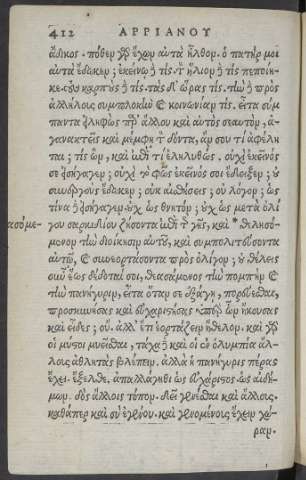 412 ΑΡΡΙΑΝΟΥ
ἄδικος· πόθεν γὰρ ἔχων αὐτὰ ἦλθον. ὁ πατήρ μοι
αὐτὰ ἔδωκεν; ἐκείνῳ δὲ τίς· τὸν ἥλιον δὲ τίς πεποίη-
κε· τοὺς καρποὺς δὲ τίς· τὰς δὲ ὥρας τίς· τὴν δὲ πρὸς
ἀλλήλους συμπλοκὴν καὶ κοινωνίαν τίς. εἶτα σύμ
παντα εἰληφὼς παρ' ἄλλου καὶ αὐτὸς σεαυτὸν, ἀ-
γανακτεῖς καὶ μέμφῃ τὸν δόντα, ἄν σου τι ἀφέλη-
ται; τίς ὢν, καὶ ἐπὶ τί ἐληλυθώς. οὐχὶ ἐκεῖνός
σε εἰσήγαγεν; οὐχὶ τὸ φῶς ἐκεῖνός σοι ἔδειξεν; οὐ
συνεργοὺς ἔδωκεν; οὐκ αἰσθήσεις; οὐ λόγον; ὡς
τίνα δὲ εἰσήγαγεν· οὐχ ὡς θνητόν; οὐχ ὡς μετὰ ὀλί
γου σαρκιδίου ζήσοντα ἐπὶ τῆς γῆς, καὶ *
μονον τὴν διοίκησιν αὐτοῦ, καὶ συμπολιτεύσοντα
αὐτῷ, καὶ συνεορτάσοντα πρὸς ὀλίγον; οὐ θέλεις
οὖν ἕως δέδοταί σοι, θεασάμενος τὴν πομπὴν καὶ
τὴν πανήγυριν, εἶτα ὅταν σε ἐξάγῃ, πορεύεσθαι,
προσκυνήσας καὶ εὐχαριστήσας ὑπὲρ ὧν ἤκουσας
καὶ εἶδες; οὔ. ἀλλ' ἔτι ἑορτάζειν ἤθελον. καὶ γὰρ
οἱ μύσται μυεῖσθαι, τάχα δὲ καὶ οἱ ἐν ὀλυμπίᾳ ἄλ-
λους ἀθλητὰς βλέπειν. ἀλλὰ ἡ πανήγυρις πέρας
ἔχει. ἔξελθε. ἀπαλλάγηθι ὡς εὐχάριστος ὡς αἰδή-
μων. δὸς ἄλλοις τόπον. δεῖ γενέσθαι καὶ ἄλλους.
καθάπερ καὶ σὺ ἐγένου. καὶ γενομένους ἔχειν χώ-
ραν.